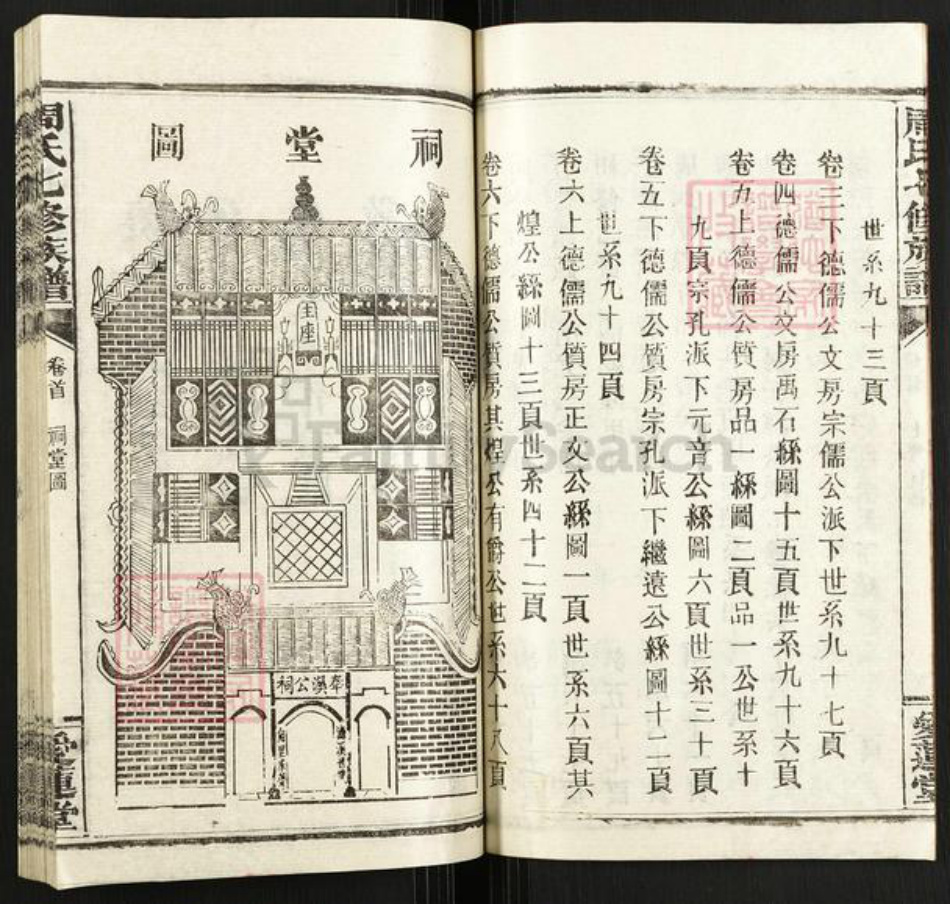 周氏七修族譜
愛蓮堂
世系九十三頁
卷三下德儒公文房宗儒公派下世系九十七頁
卷四德儒公文房禹石公緜圖十五頁世系九十六頁
卷五上德儒公質房品一緜圖二頁品一公世系十
九頁宗孔派下元音公緜圖六頁世系三十一頁
卷五下德儒公質房宗孔派下繼遠公緜圖十二頁
世系九十四頁
卷六上德儒公質房正文公緜圖一頁世系六頁其
煌公緜圖十三頁世系四十二頁
卷六下德儒公質房其煌公有爵公世系六十八頁
祠堂圖
主座
奉漢公祠
周氏七修族譜
卷首
祠堂圖
愛蓮堂
FamilySearch